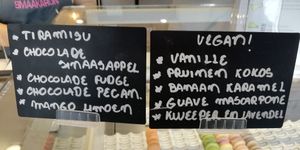 SMAAKARON
* TIRAMISU
* CHOCOLADE
SINAASAPPEL
* CHOCOLADE FUDGE
* CHOCOLADE PECAN
* MANGO LIMOEN
VEGAN!
* VANILLE
* PRUIMEN KOKOS
* BANAAN KARAMEL
* GUAVE MASCARPONE
* KWEEPER EN LAVENDEL